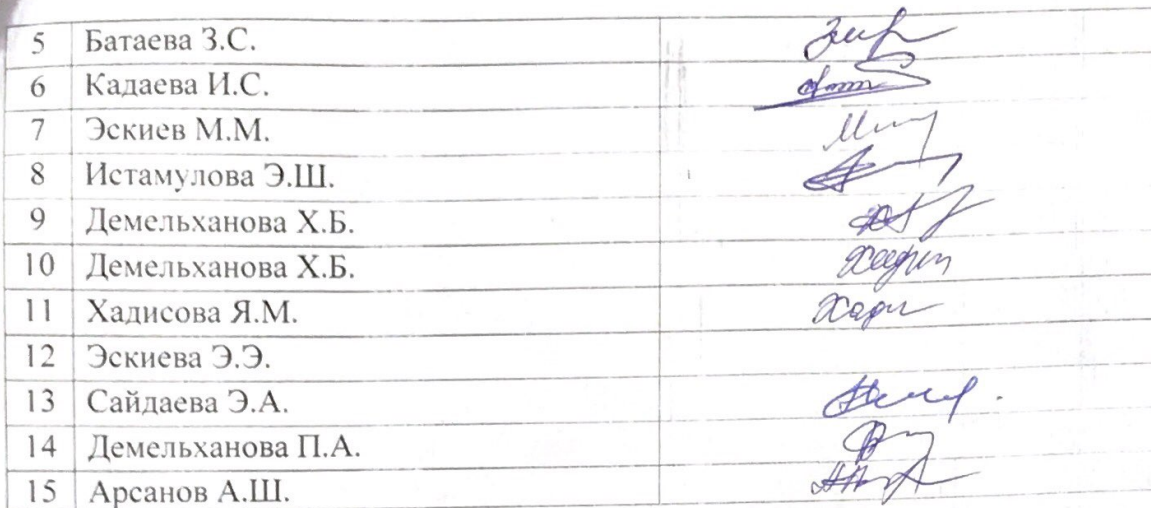 5 Батаева З.С.
6 Кадаева И.С.
7 Эскиев М.М.
8 Истамулова Э.Ш.
9 Демельханова Х.Б.
10 Демельханова Х.Б.
11 Хадисова Я.М.
12 Эскиева Э.Э.
13 Сайдаева Э.А.
14 Демельханова П.А.
15 Арсанов А.Ш.